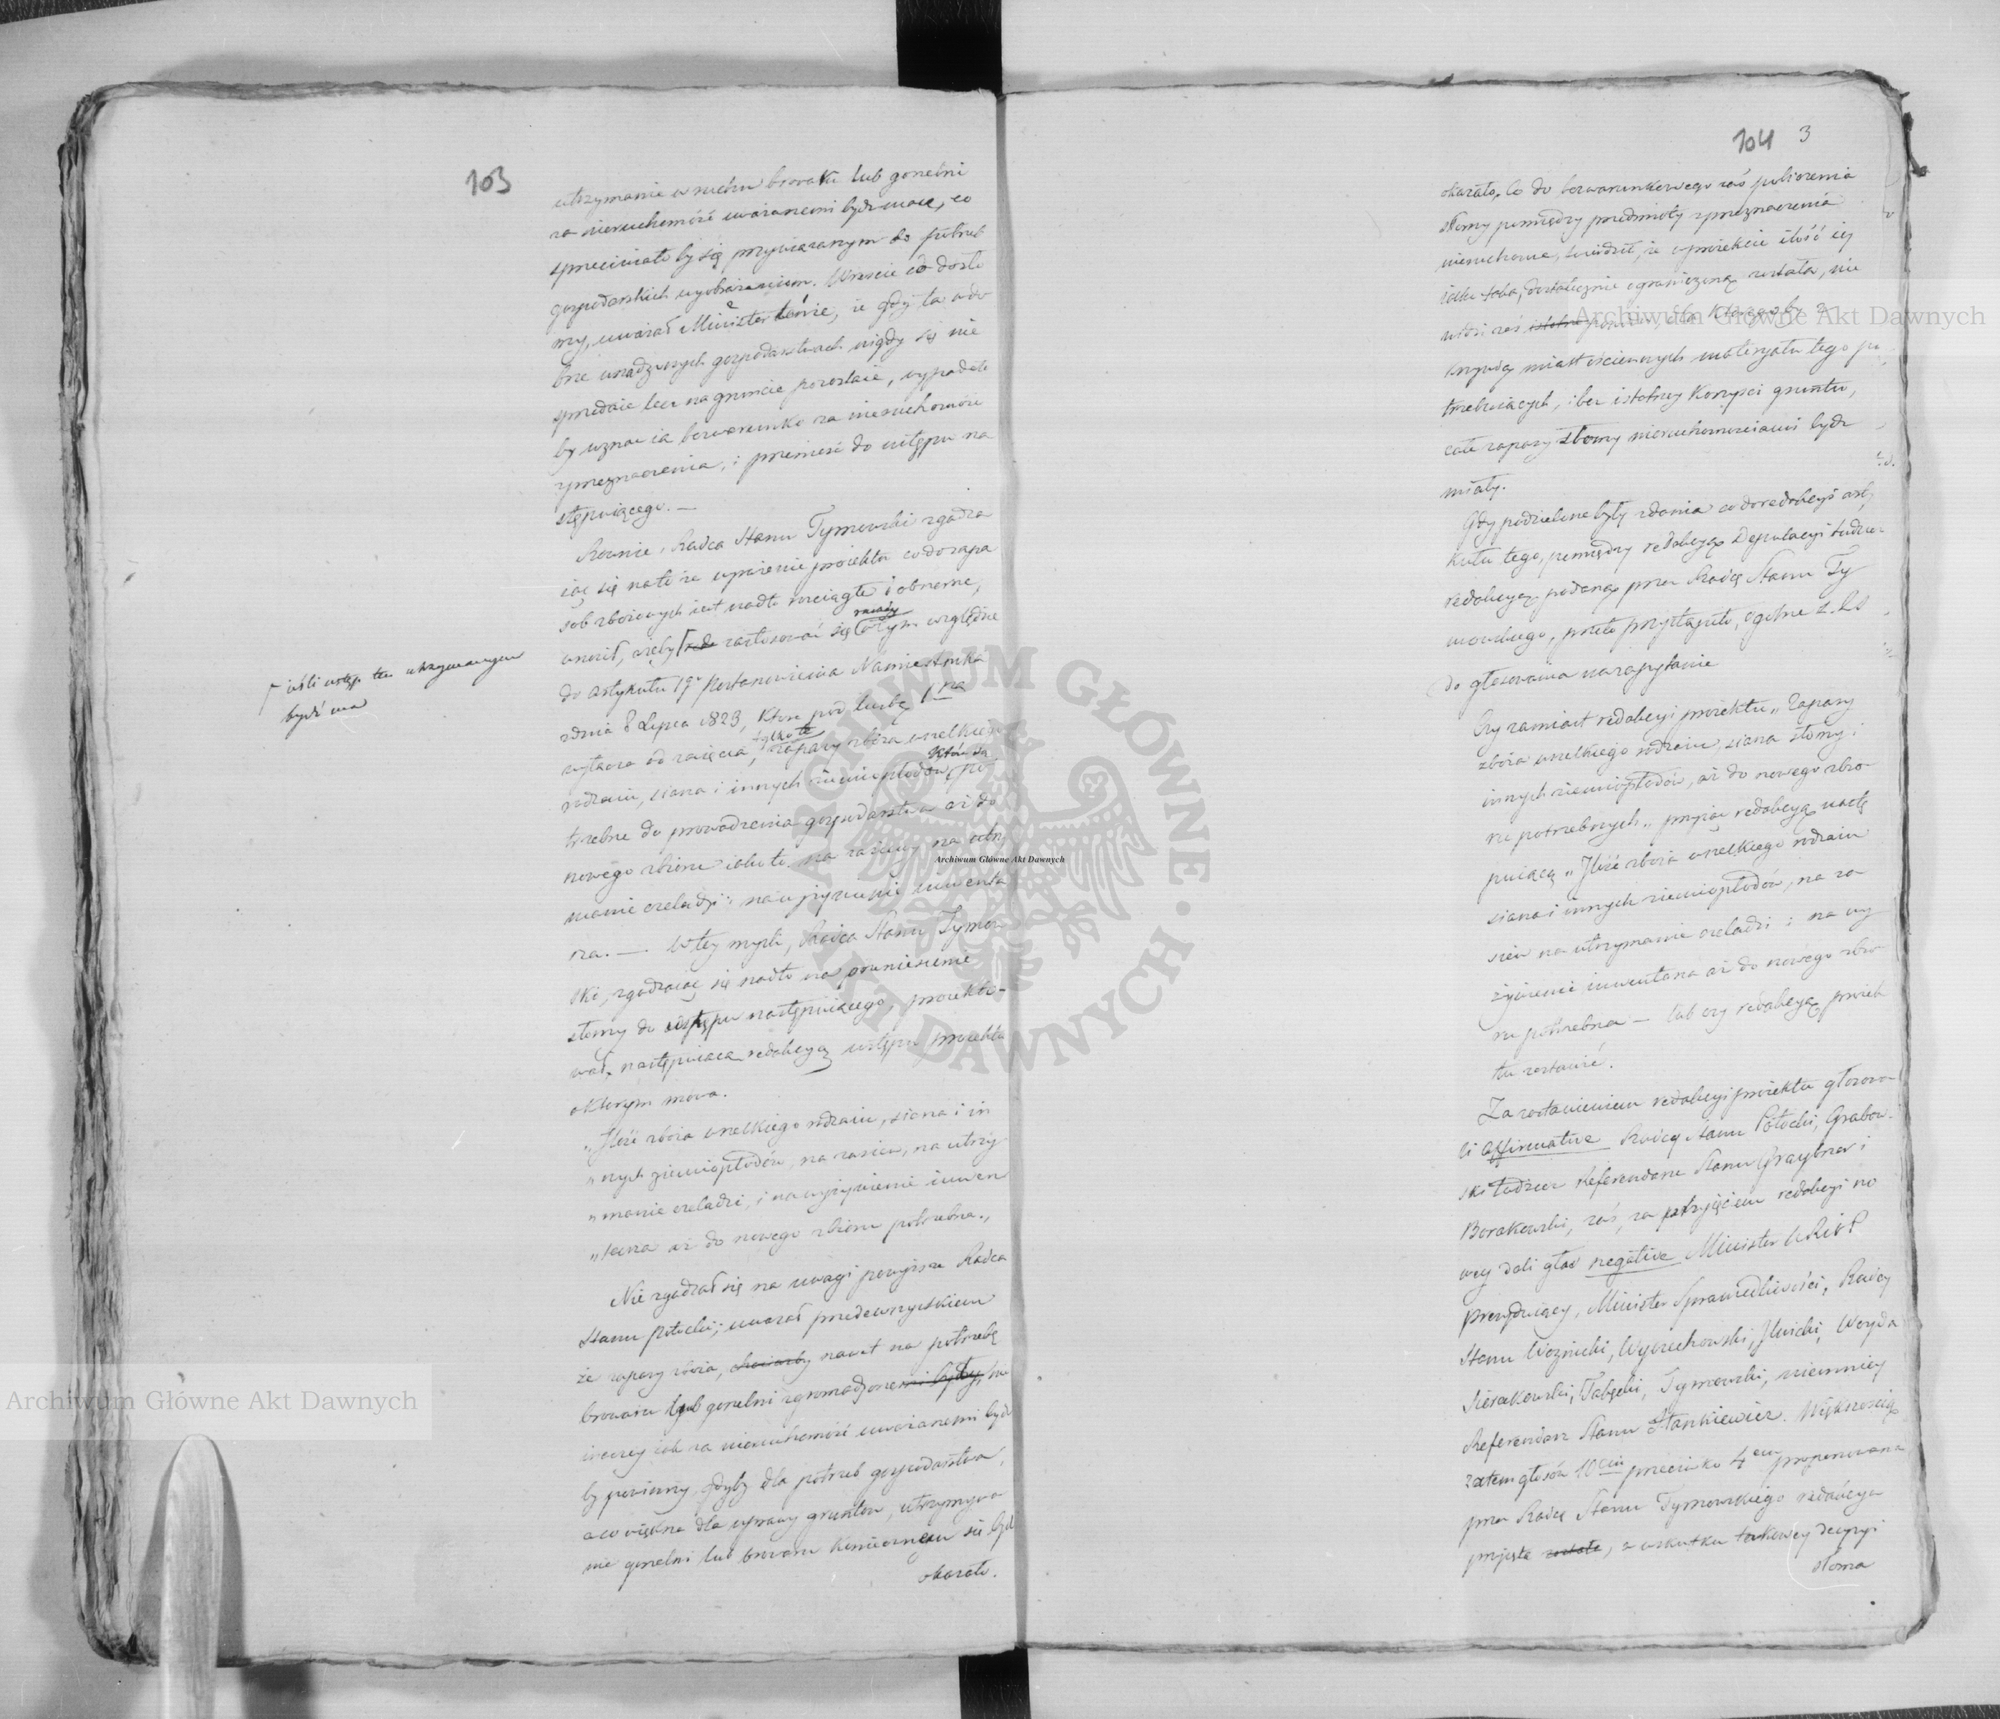 103
utrzymanie w ruchu browaru lub gorzelni
za nieruchomość uważanemi bydź maią, co
sprzeciwiało by się przywiązanym do potrzeb
gospodarskich wyobrażeniom. Wreszcie co do sło
my, uważał Minister, że gdy ta w do
brze urządzonych gospodarstwach nigdy się nie
sprzedaie lecz na gruncie pozostaie, wypadało
by uznać ią bezwarunko za nieruchomość
z przeznaczenia, i przenieść do ustępu na
stępuiącego. —
Równie, Radca Stanu Tymowski zgadza
iąc się na to że wyrzeczenie proiektu co do zapa
sów zbożowych iest nadto rozciągłe i obszerne,
wnosił, ażeby zastosować się w tym względzie
raczéy
⌈ iéśli ustęp ten utrzymanym
bydź ma
do artykułu 19º Postanowienia Namiestnika
z dnia 8 Lipca 1823, które pod liczbą 1 na
wyłącza od zaięcia, zapasy zboża wszelkiego
tylko te
rodzaiu, siana i innych ziemiopłodów, po
które są
trzebne do prowadzenia gospodarstwa aż do
nowego zbioru iako to na zasiewy na utrzy
manie czeladzi i na wyżywienie inwenta
rza. — W tey myśli, Radca Stanu Tymow
ski, zgadzaiąc się nadto na przeniesienie
słomy do ustępu następuiącego, proiekto-
wał, następuiącą redakcyą ustępu proiektu
o którym mowa.
„Ilość zboża wszelkiego rodzaiu, siana i in
„nych ziemiopłodów, na zasiew, na utrzy
„manie czeladzi, i na wyżywienie inwen
„tarza aż do nowego zbioru potrzebna.„
Nie zgadzał się na uwagi powyższe Radca
Stanu Potocki; uważał przedewszystkiem
że zapasy zboża, chociażby nawet na potrzebę
browaru lub gorzelni zgromadzone
inaczey iak za nieruchomość uważanemi bydź
by powinny, gdyby dla potrzeb gospodarstwa,
a co większa dla uprawy gruntów, utrzymywa
nie gorzelni lub browaru koniecznem się bydź
okazało.
104 3
okazało. Co do bezwarunkowego zaś policzenia
słomy pomiędzy przedmioty z przeznaczenia
nieruchome, twierdził, że w proiekcie ilość iéy
iako taka, dostatecznie ograniczoną została, nie
krzywdą miast ościennych materyału tego po
trzebuiących, i bez istotney korzyści gruntu,
całe zapasy słomy nieruchomościami bydź
miały.
Gdy podzielone były zdania co do redakcyi arty
kułu tego, pomiędzy redakcyą Deputacyi tudzież
redakcyą podaną przez Radcę Stanu Ty
mowskiego, przeto przystąpiło, ogólne Z. R. S
do głosowania na zapytanie
Czy zamiast redakcyi proiektu „Zapasy
zboża wszelkiego rodzaiu, siana słomy i
innych ziemiopłodów, aż do nowego zbio
ru potrzebnych„ przyiąć redakcyą nastę
puiącą „Ilość zboża wszelkiego rodzaiu
siana i innych ziemiopłodów, na za
siew na utrzymanie czeladzi i na wy
żywienie inwentarza aż do nowego zbio
ru potrzebna — lub czy redakcyą proiek
tu zostawić.
Za zostawieniem redakcyi proiektu głosowa
li affirmative Radcy Stanu Potocki, Grabow
ski tudzież Referendarze Stanu Graybner i
Borakowski, zaś, za przyjęciem redakcyi no
wey dali głos negative Minister WRiOP
Prezyduiący, Minister Sprawiedliwości, Radcy
Stanu Woźnicki, Wyczechowski, Ilnicki, Woyda
Sierakowski, Tabęcki, Tymowski, niemniéy
Referendarz Stanu Stankiewicz. Większością
zatem głosów 10ciu przeciwko 4em proponowana
przez Radcę Stanu Tymowskiego redakcya
przyjęta została, z w skutku takowey decyzyi
słoma
Archiwum Główne Akt Dawnych
Archiwum Główne Akt Dawnych
Archiwum Główne Akt Dawnych
ARCHIWUM GŁÓWNE AKT DAWNYCH